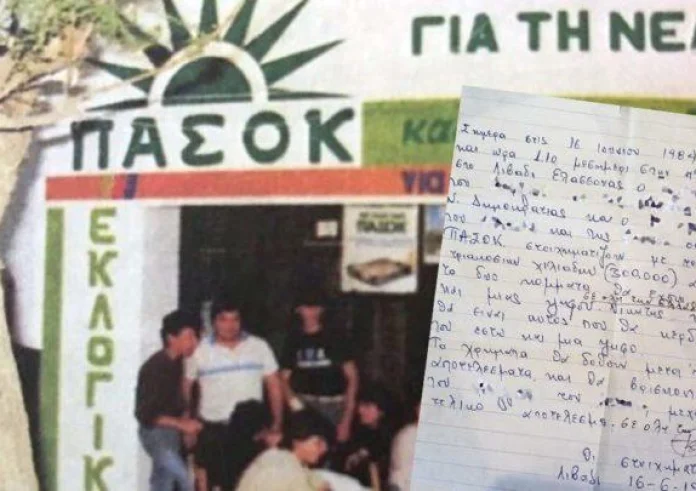 ΓΙΑ ΤΗ ΝΕΑ
ΠΑΣΟΚ
και
για
ΕΚΛΟΓΙΚ
ΠΑΣΟΚ
Σήμερα στις 16 Ιουνίου 198
και ώρα 1.10 μεσημέρι στην
στο Λιβάδι Ελασσόνας ο
του
Ν. Δημοκρατίας και ο
του και της
ΠΑΣΟΚ στοιχηματίζουν με το
τριακοσίων χιλιάδων (300.000)
το δυο κόμματα θα
και μιας ψήφου. Νικητής
θα είναι αυτός που θα κερδ
του έστω και μια ψήφο
Τα χρήματα θα δοθούν μετά
αποτελέσματα και θα βρίσκον
του του με
τελικό αποτέλεσμα σε όλη
Οι στοιχηματ
Λιβάδι 16-6-19